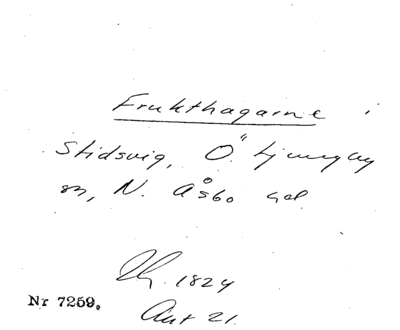 Frukthagarne i
Stidsvig, Ö. Ljungby
sn, N. Åsbo hd
1824
Nr 7259.
Aut 21.